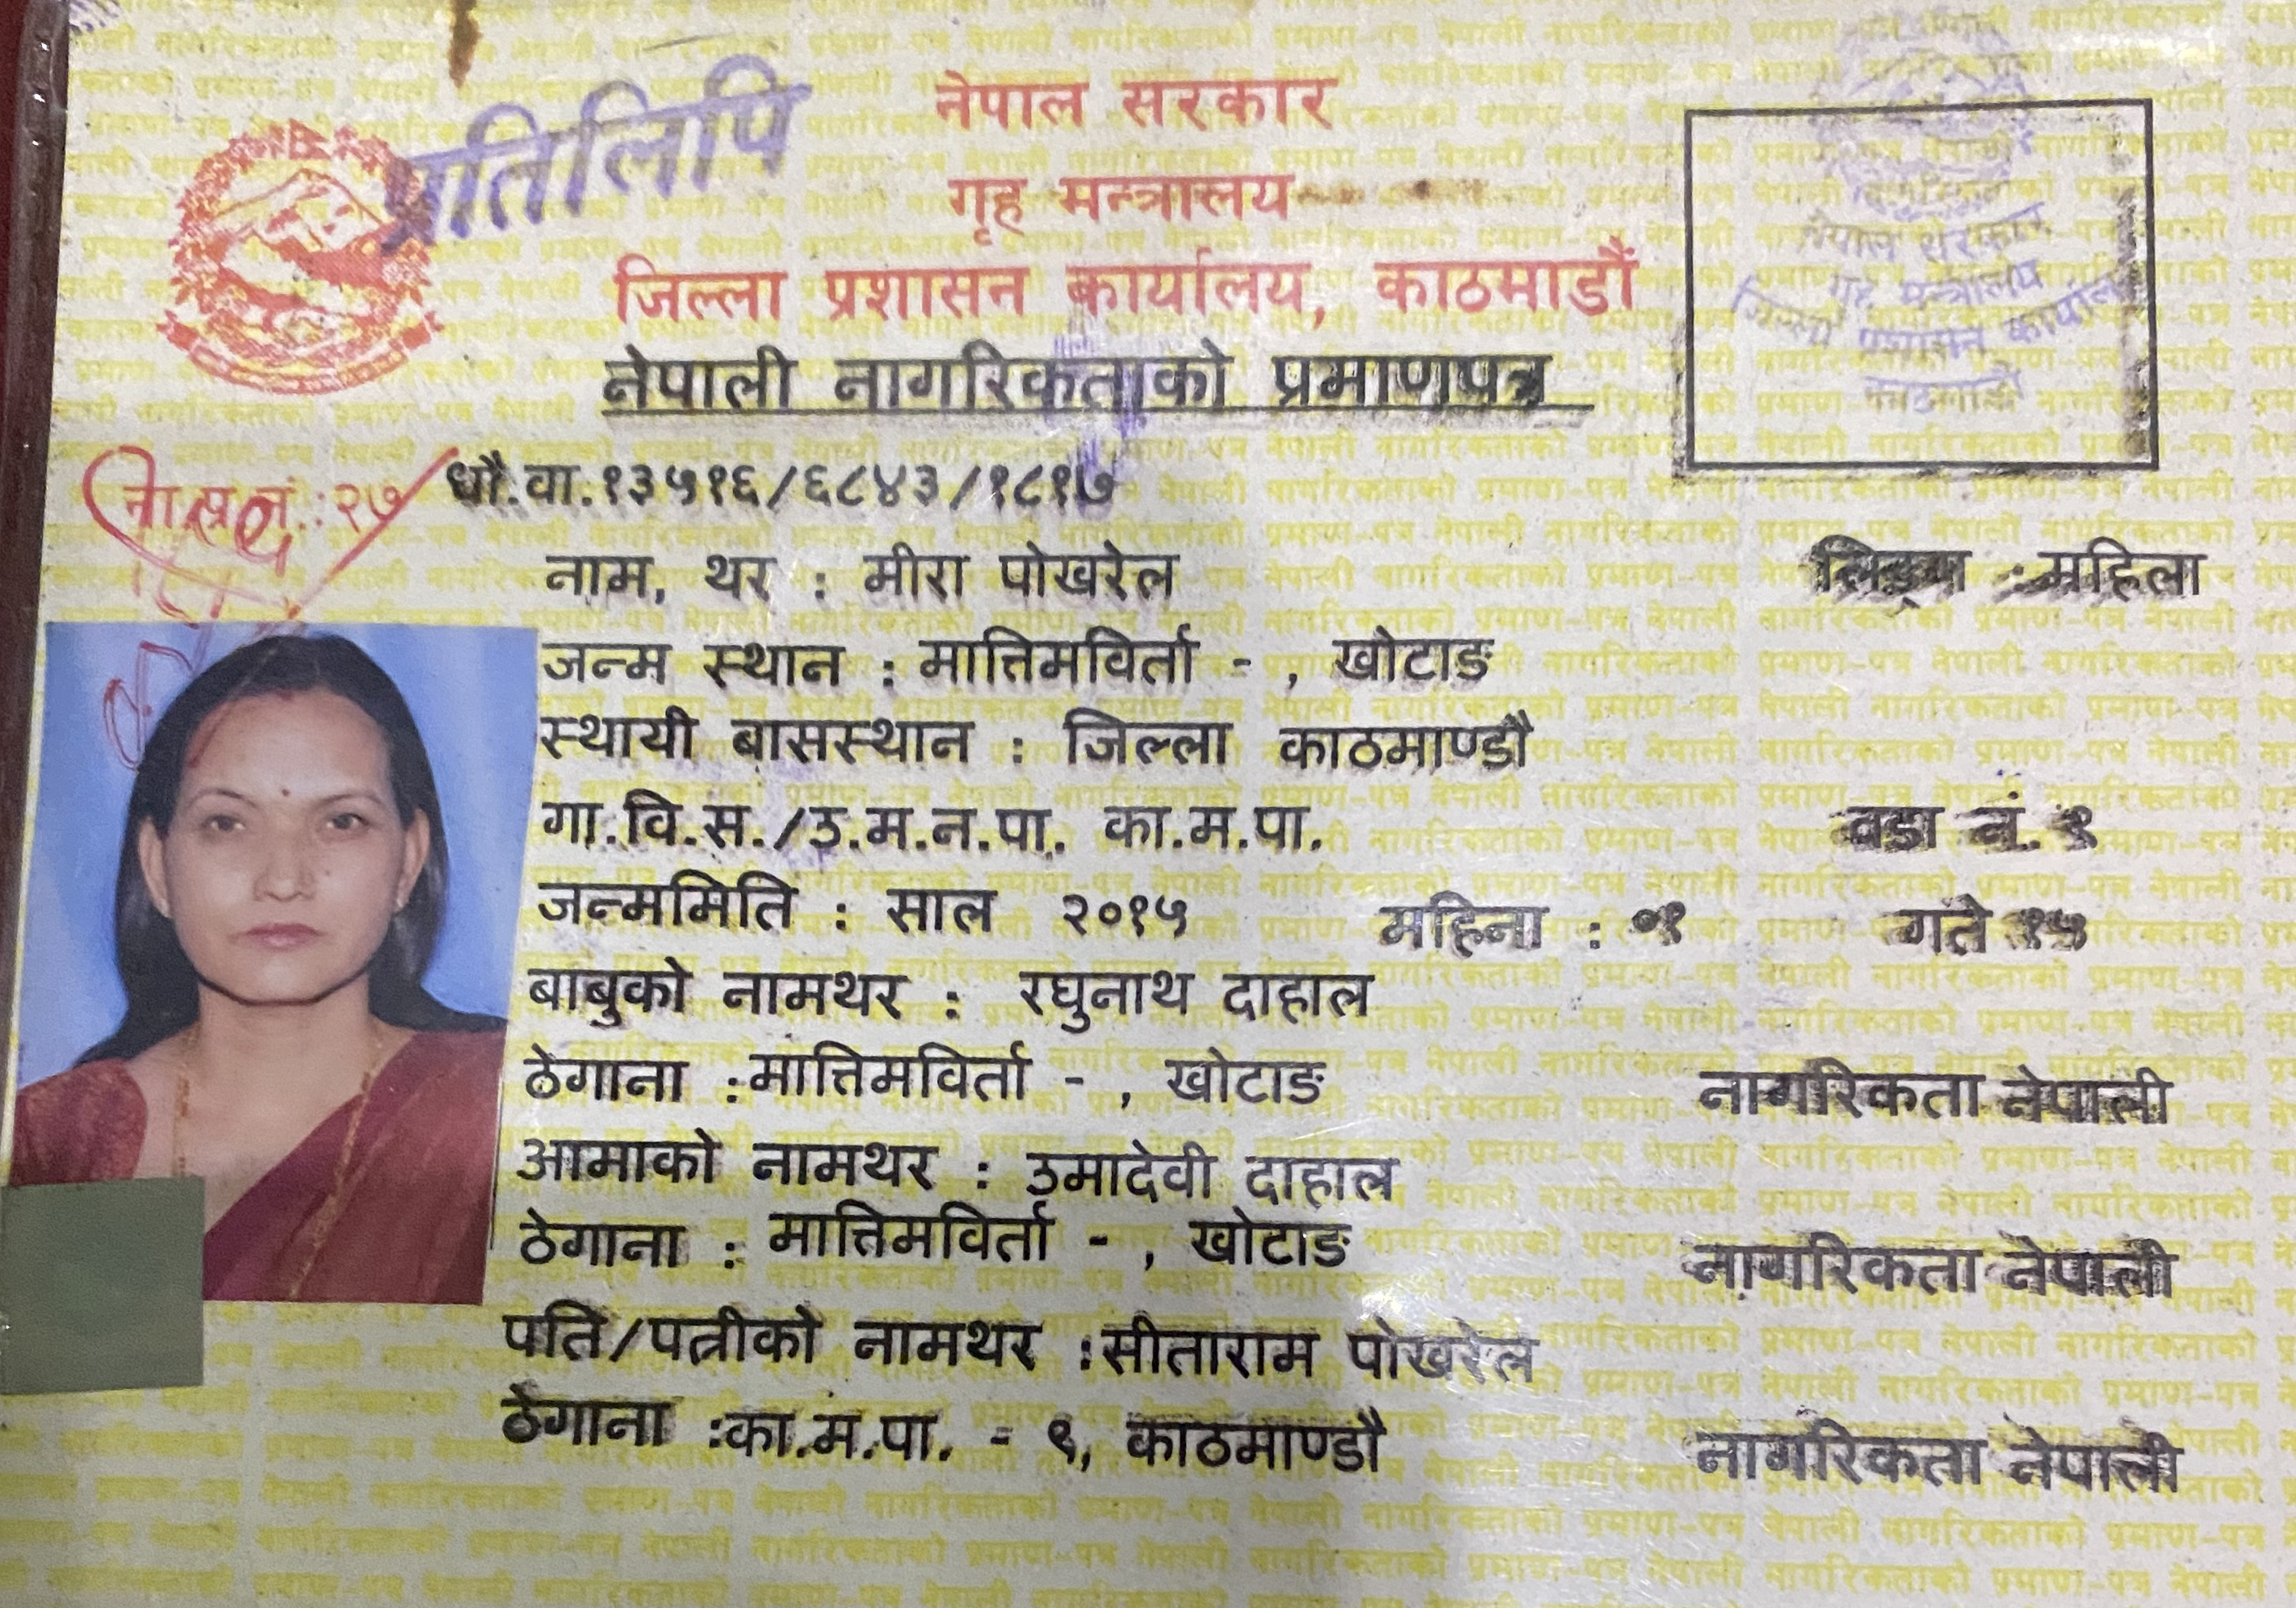 प्रतिलिपि
नेपाल सरकार
गृह मन्त्रालय
जिल्ला प्रशासन कार्यालय, काठमाडौं
नेपाली नागरिकताको प्रमाणपत्र
नेपाल सरकार
गृह मन्त्रालय
जिल्ला प्रशासन कार्यालय
काठमाडौं
ना.प्र.नं.:२७ धौ.वा.१३५१६/६८४३/१८१७
नाम, थर : मीरा पोखरेल लिङ्ग : महिला
जन्म स्थान : मात्तिमविर्ता - , खोटाङ
स्थायी बासस्थान : जिल्ला काठमाण्डौ
गा.वि.स./उ.म.न.पा. का.म.पा. वडा नं. ९
जन्ममिति : साल २०१५ महिना : ०१ गते १५
बाबुको नामथर : रघुनाथ दाहाल
ठेगाना : मात्तिमविर्ता - , खोटाङ नागरिकता नेपाली
आमाको नामथर : उमादेवी दाहाल
ठेगाना : मात्तिमविर्ता - , खोटाङ नागरिकता नेपाली
पति/पत्नीको नामथर : सीताराम पोखरेल
ठेगाना : का.म.पा. - ९, काठमाण्डौ नागरिकता नेपाली